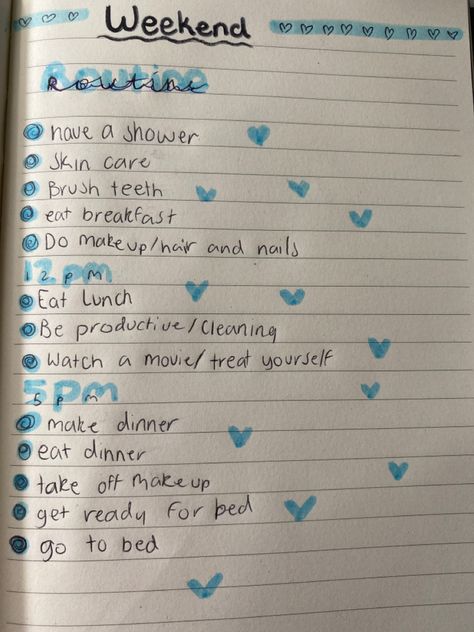 Weekend
Routine
have a shower
Skin care
Brush teeth
eat breakfast
Do makeup/hair and nails
12pm
Eat Lunch
Be productive/Cleaning
Watch a movie/ treat yourself
5pm
make dinner
eat dinner
take off makeup
get ready for bed
go to bed